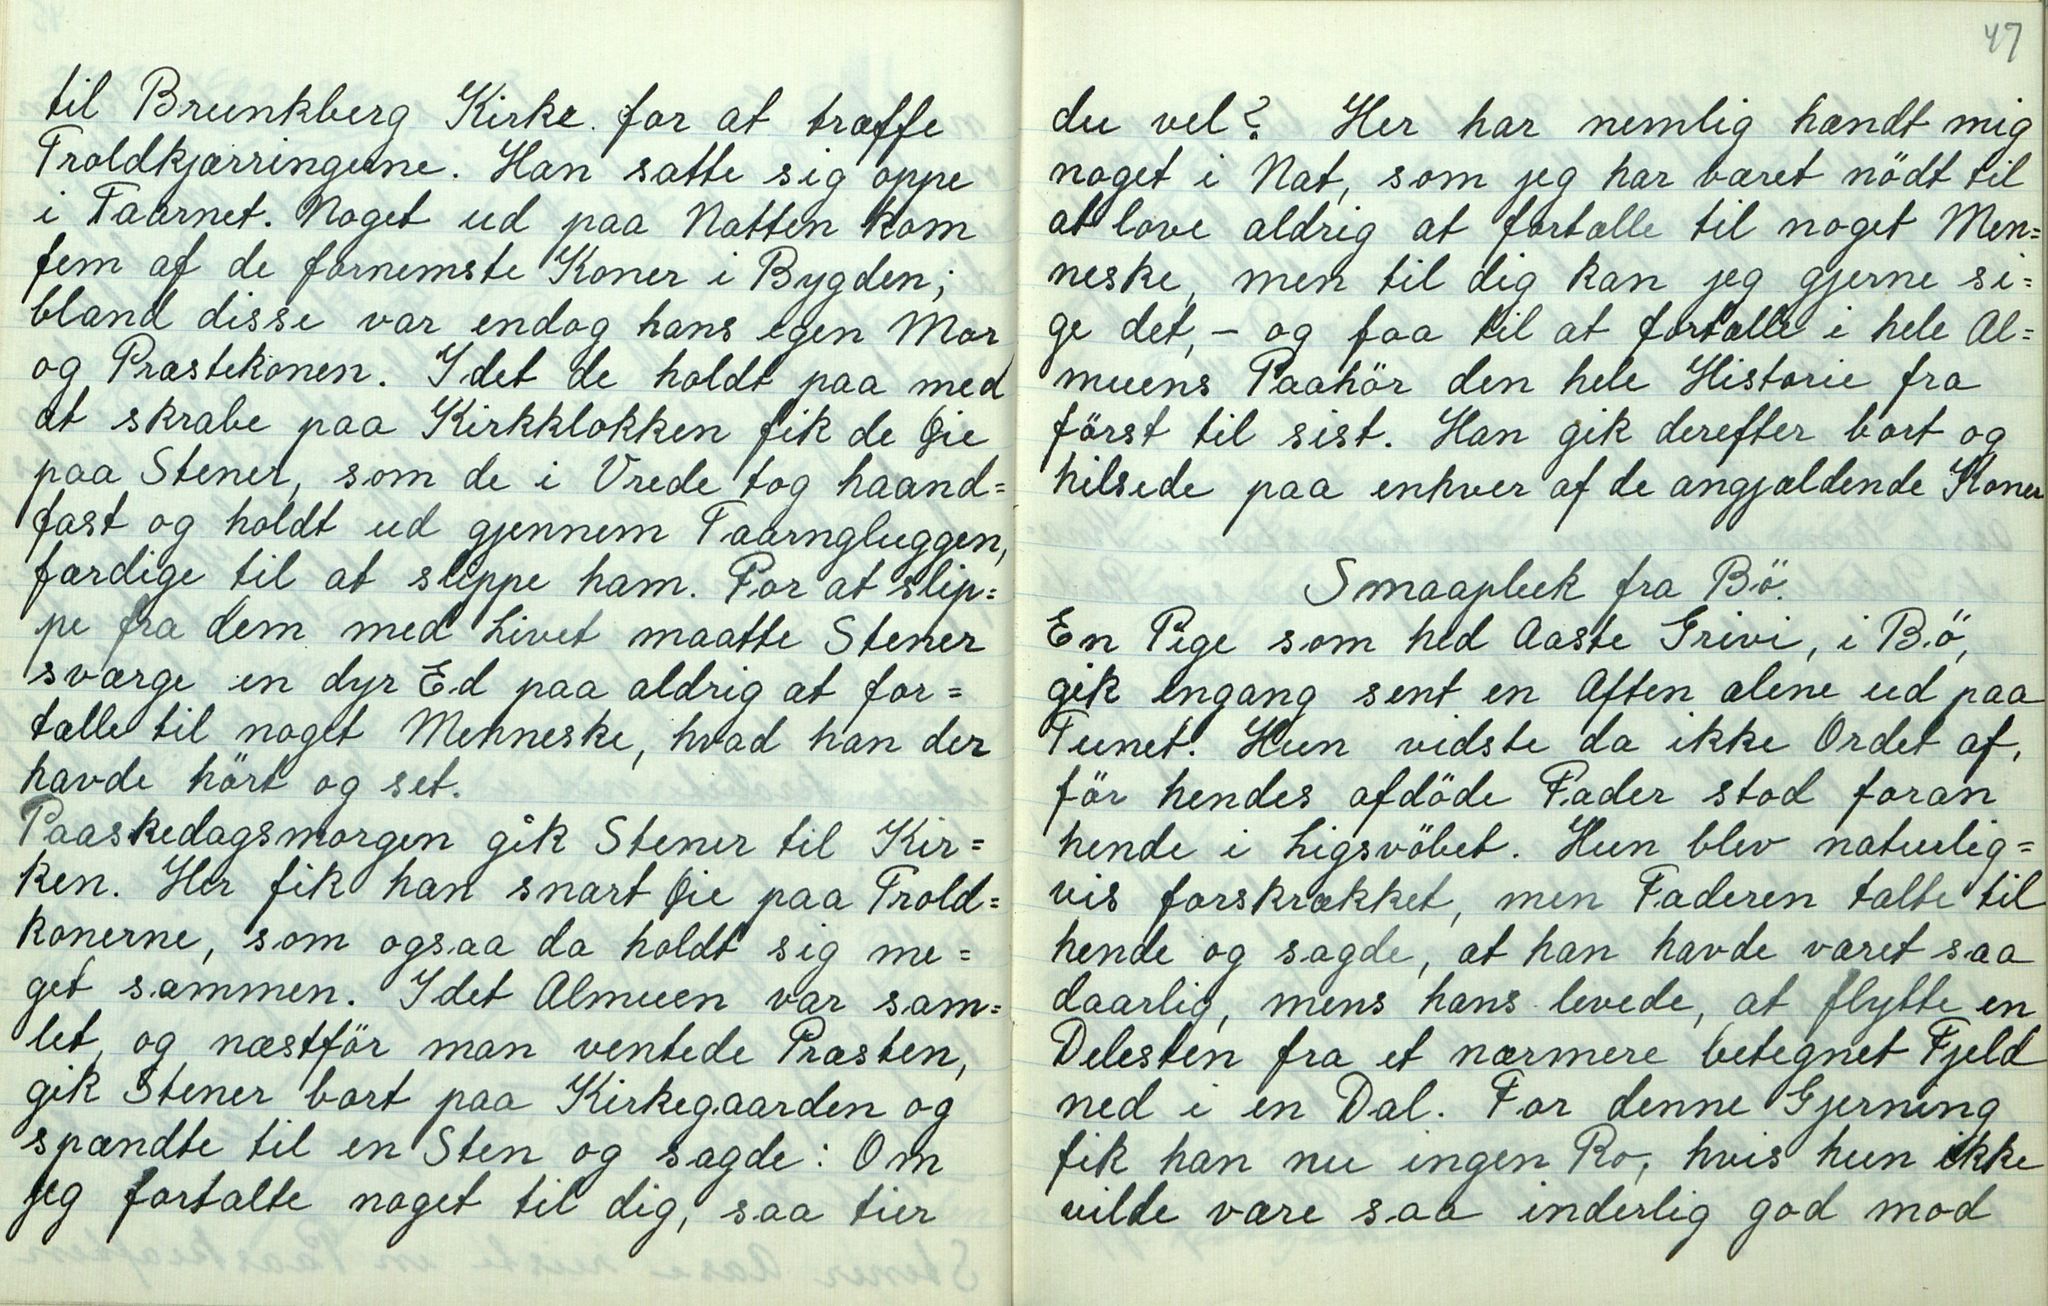 til Brunkberg Kirke for at træffe
Troldkjærringerne. Han satte sig oppe
i Taarnet. Noget ud paa Natten kom
fem af de fornemste Koner i Bygden;
bland disse var endog hans egen Mor
og Præstekonen. Idet de holdt paa med
at skrabe paa Kirkklokken fik de Øie
paa Stener, som de i Vrede tog haand=
fast og holdt ud gjennem Taarngluggen,
færdige til at slippe ham. For at slip=
pe fra dem med Livet maatte Stener
sværge en dyr Ed paa aldrig at for=
tælle til noget Menneske, hvad han der
havde hört og set.
Paaskedagsmorgen gik Stener til Kir=
ken. Her fik han snart Øie paa Trold=
konerne, som ogsaa da holdt sig me=
get sammen. Idet Almuen var sam=
let, og næstför man ventede Præsten,
gik Stener bort paa Kirkegaarden og
spændte til en Sten og sagde: Om
jeg fortalte noget til dig, saa tier
47
du vel? Her har nemlig hændt mig
noget i Nat, som jeg har været nödt til
at love aldrig at fortælle til noget Men=
neske, men til dig kan jeg gjerne si=
ge det, - og faa til at fortælle i hele Al=
muens Paahör den hele Historie fra
först til sist. Han gik derefter bort og
hilsede paa enhver af de angjældende Koner
Smaaplukk fra Bö.
En Pige som hed Aaste Grivi, i Bö,
gik engang sent en Aften alene ud paa
Tunet. Hun vidste da ikke Ordet af,
för hendes afdöde Fader stod foran
hende i Ligsvöbet. Hun blev naturlig=
vis forskrækket, men Faderen talte til
hende og sagde, at han havde været saa
daarlig, mens hans levede, at flytte en
Delesten fra et nærmere betegnet Fjeld
ned i en Dal. For denne Gjerning
fik han nu ingen Ro, hvis hun ikke
vilde være saa inderlig god mod